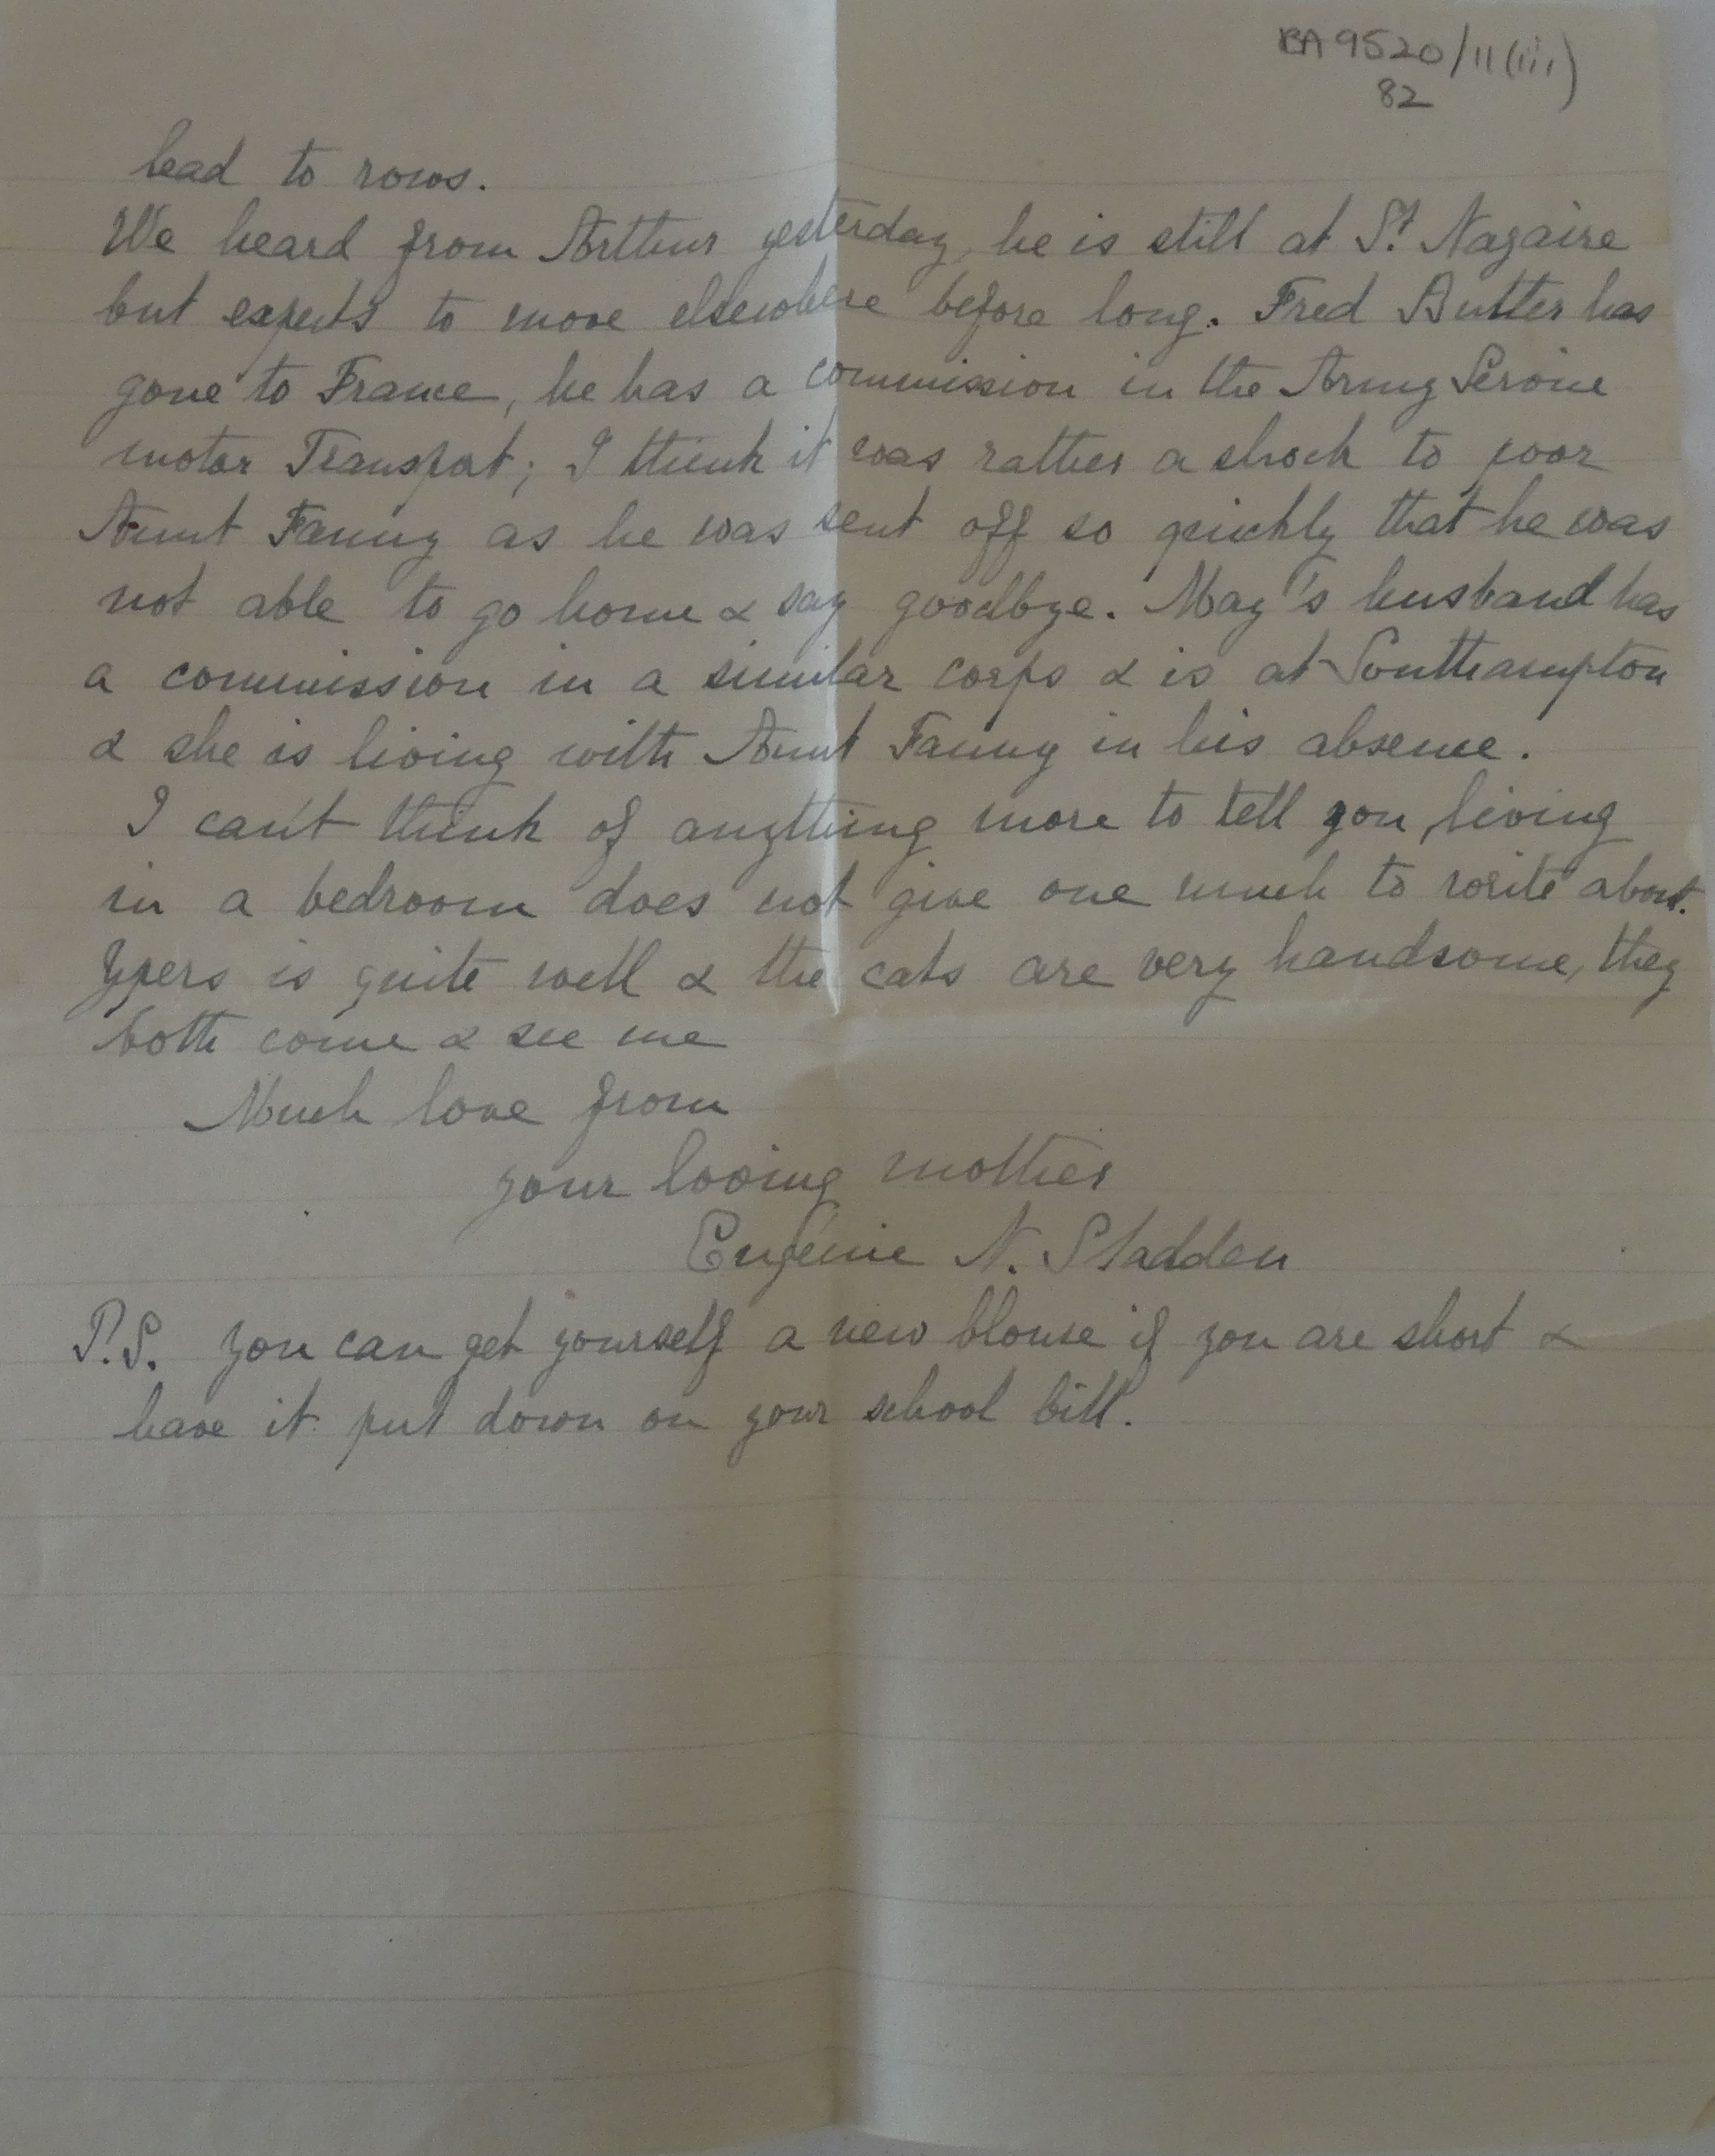 BA 9520/11(iii)
82
lead to rows.
We heard from Arthur yesterday, he is still at St. Nazaire
but expects to move elsewhere before long. Fred Butter has
gone to France, he has a commission in the Army Service
motor Transport; I think it was rather a shock to poor
Aunt Fanny as he was sent off so quickly that he was
not able to go home & say goodbye. May's husband has
a commission in a similar corps & is at Southampton
& she is living with Aunt Fanny in his absence.
I can't think of anything more to tell you, living
in a bedroom does not give one much to write about.
Ypers is quite well & the cats are very handsome, they
both come & see me
Much love from
your loving mother
Eugénie N. Sladden
P.S. you can get yourself a new blouse if you are short &
have it put down on your school bill.